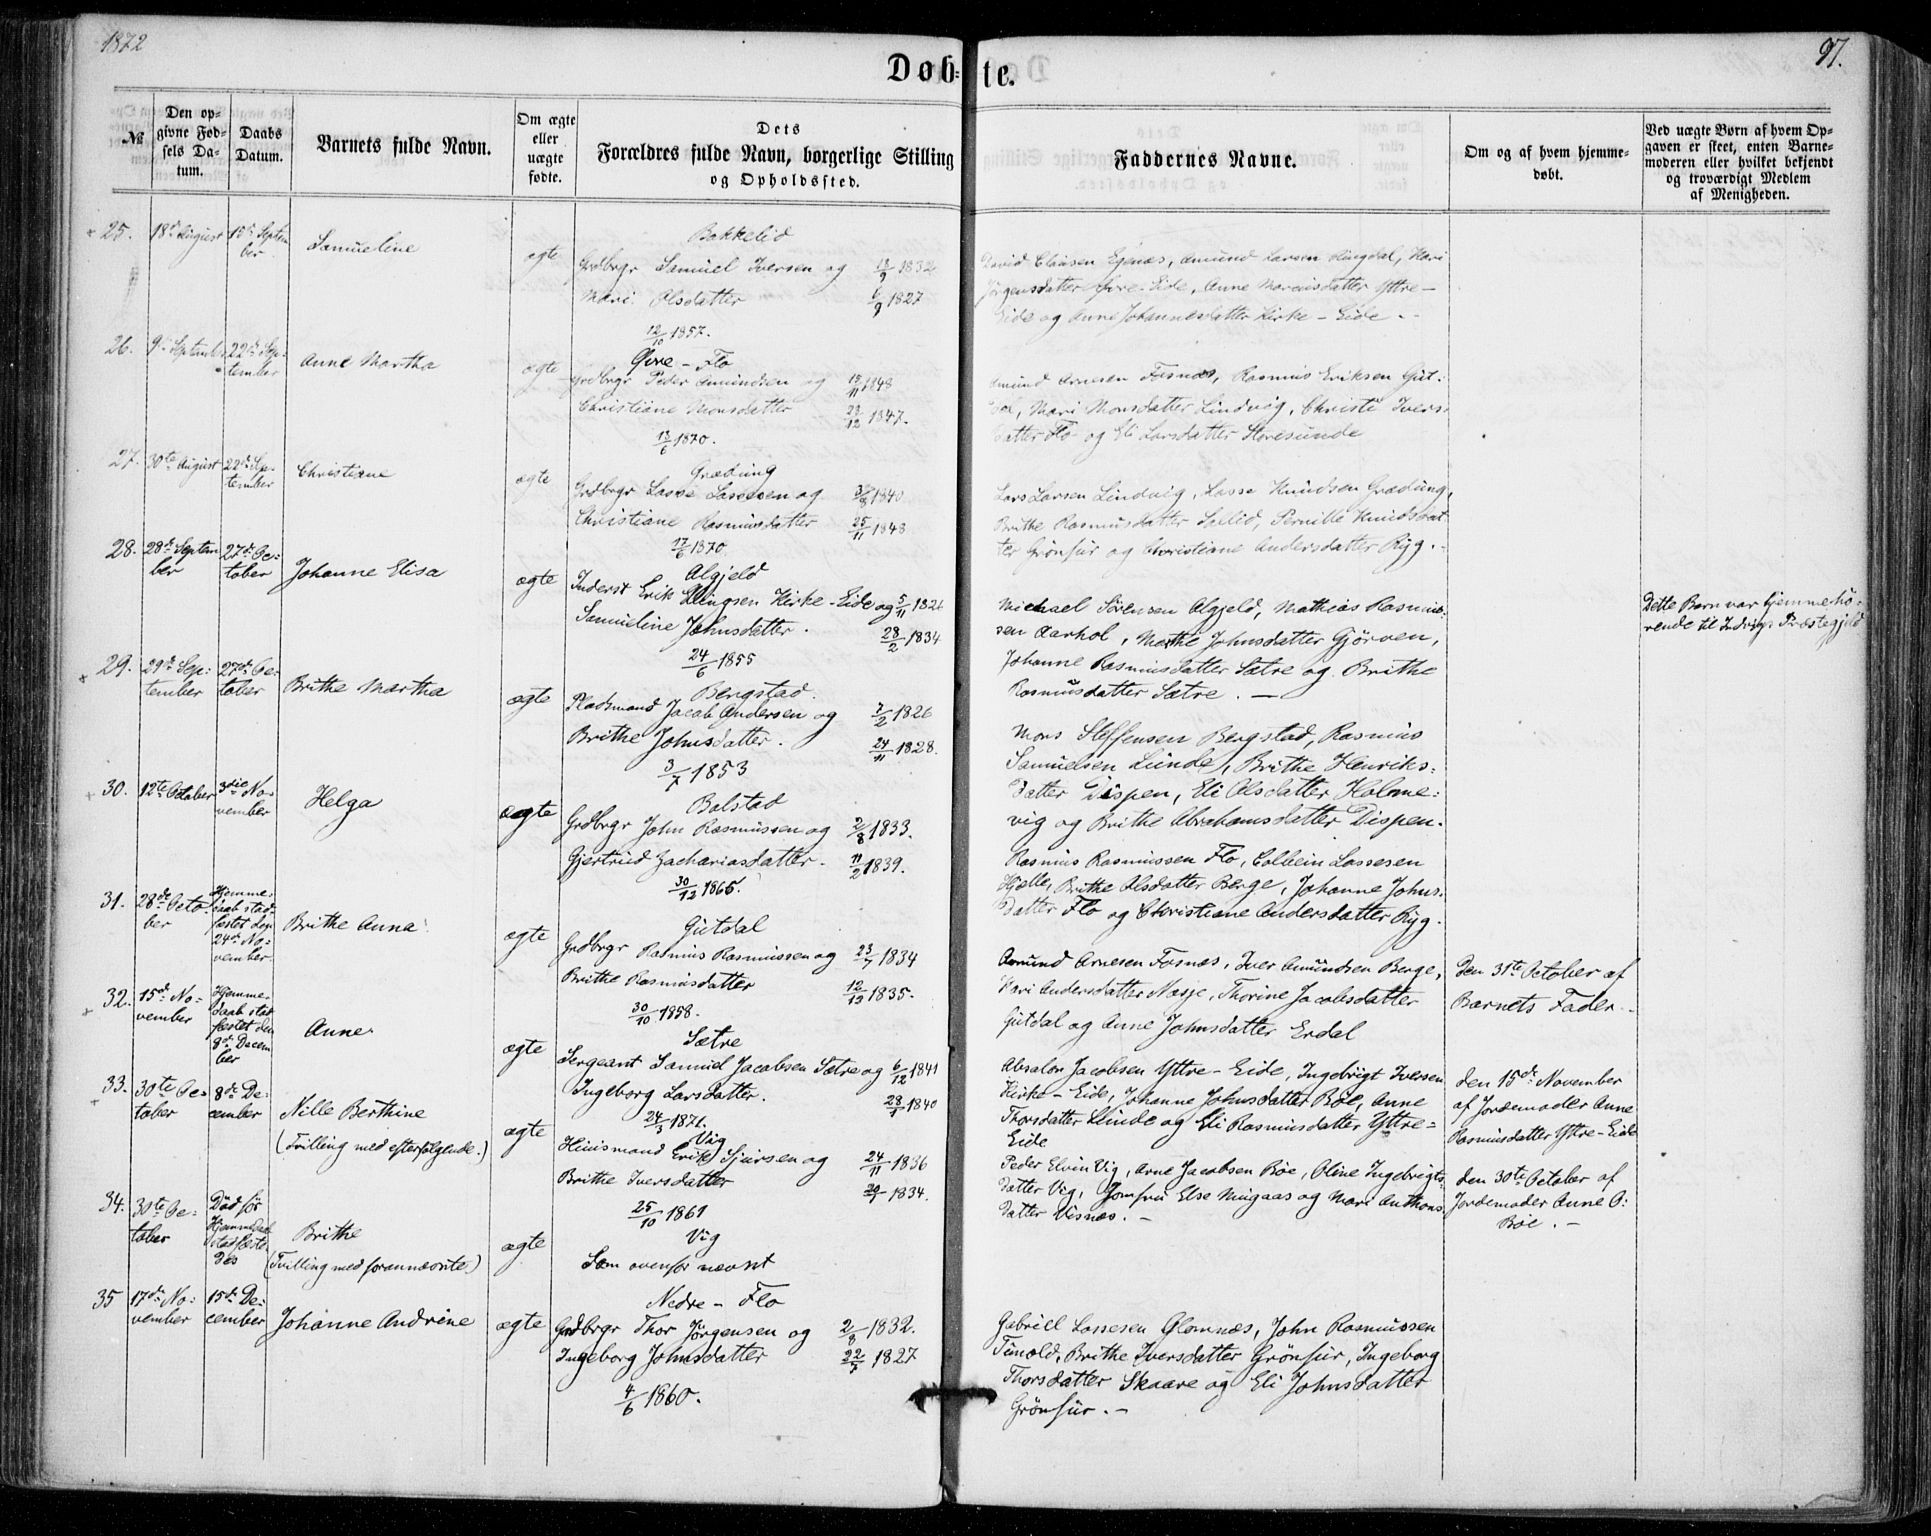 1872
97.
Døb-te.
№
Den op-
givne Fød-
sels Da-
tum.
Daabs
Datum.
Barnets fulde Navn.
Om ægte
eller
uægte
fødte.
Dets
Forældres fulde Navn, borgerlige Stilling
og Opholdssted.
Faddernes Navne.
Om og af hvem hjemme-
døbt.
Ved uægte Børn af hvem Op-
gaven er skeet, enten Barne-
moderen eller hvilket bekjendt
og troværdigt Medlem
af Menigheden.
25.
18de August
15de Septem
ber
Samueline
ægte
Bakkelid
Grdbrgr Samuel Iversen og 13/9 1832
Mari Olsdatter 6/9 1827
12/10 1857.
David Clausen Egenæs, Amund Larsen Ringdal, Mari
Jörgensdatter Øvre-Eide, Anne Mariusdatter Yttre-
Eide og Anne Johannesdatter Kirke-Eide.-
26.
9de September
22de Sep-
tember
Anne Martha
ægte
Øvre-Flo
Grdbrgr Peder Amundsen og 19/11 1848
Christiane Monsdatter 29/12 1847.
13/6 1870.
Amund Arnesen Fosnæs, Rasmus Eriksen Gut:
dal, Mari Monsdatter Lindvig, Christi Ivers:
datter Flo og Eli Larsdatter Storesunde
27.
30te August
22de Sep-
tember
Christiane
ægte
Grædung
Grdbrgr Lasse Lassesen og 3/8 1840
Christiane Rasmusdatter 25/11 1848
17/6 1870
Lars Larsen Lindvig, Lasse Knudsen Grædung,
Brithe Rasmusdatter Sælid, Pernille Knudsdat
ter Grönfur og Christiane Andersdatter Ryg.-
28.
28de Septem
ber
27de Oc-
tober
Johanne Elisa
ægte
Algjeld
Inderst Erik Ellingsen Kirke-Eide og 5/11 1826
Samueline Johnsdatter. 28/2 1834
24/6 1855
Michael Sörensen Algjeld, Mathias Rasmus-
sen Aarhol, Marthe Johnsdatter Gjörven,
Johanne Rasmusdatter Sætre og Brithe
Rasmusdatter Sætre. -
Dette Barn var hjemmehö-
rende til Indvigs Præstegjeld
29.
29de Sep:
tember
27de Oc-
tober
Brithe Martha
ægte
Bergstad.
Pladsmand Jacob Andersen og 7/2 1826
Brithe Johnsdatter. 24/11 1828.
3/7 1853
Mons Steffensen Bergstad, Rasmus
Samuelsen Lunde, Brithe Henriks:
datter Dispen, Eli Olsdatter Holme:
vig og Brithe Abrahamsdatter Dispen.
30.
12te October
3die No-
vember
Helga
ægte
Bolstad
Grdbrgr John Rasmussen og 2/8 1833.
Gjertrud Zachariasdatter. 11/2 1839.
30/12 1865.
Rasmus Rasmussen Flo, Colbein Lassesen
Hjelle, Brithe Olsdatter Berge, Johanne Johns:
datter Flo og Christiane Andersdatter Ryg.
31.
28de Octo-
ber
Hjemme-
daab stad-
fæstet den
24de No-
vember
Brithe Anna
ægte
Gutdal
Grdbrgr Rasmus Rasmussen og 23/7 1834
Brithe Rasmusdatter 12/12 1835.
30/10 1858.
Amund Arnesen Fosnæs, Iver Amundsen Berge,
Kari Andersdatter Nasje, Thorine Jacobsdatter
Gutdal og Anne Johnsdatter Erdal
Den 31te October af
Barnets Fader.-
32.
15de No-
vember
Hjemme-
daab stad
fæstet den
8de Decem
ber
Anne
ægte
Sætre
Sergeant Samuel Jacobsen Sætre og 6/12 1841
Ingeborg Larsdatter. 28/1 1840
24/3 1871.
Absalon Jacobsen Yttre-Eide, Ingebrigt Iversen
Kirke-Eide, Johanne Johnsdatter Böe, Anne
Thorsdatter Lunde og Eli Rasmusdatter Yttre=
Eide
den 15de November
af Jordemoder Anne
Rasmusdatter Yttre-Eide
33.
30te Oc-
tober
8de De-
cember
Nille Berthine
(Tvilling med efterfølgende.)
ægte
Vig
Huusmand Erik Sjursen og 24/11 1836
Brithe Iversdatter 30/1 1834.
25/10 1861
Peder Elvin Vig, Arne Jacobsen Böe, Oline Ingebrigts:
datter Vig, Jomfru Else Mugaas og Mari Anthons
datter Visnæs.-
den 30te October af
Jordemoder Anne O:
Böe.-
34.
30te Oc-
tober
Død før
Hjemmedaab
stadfæste
des
Brithe
(Tvilling med forannævnte)
ægte
Vig
Som ovenfor nævnt
35
17de No-
vember
15de De-
cember
Johanne Andrine
ægte
Nedre-Flo
Grdbrgr Thor Jörgensen og 2/8 1832.
Ingeborg Johnsdatter 22/7 1827
4/6 1860.
Gabriel Lassesen Glomnæs, John Rasmussen
Tunold, Brithe Iversdatter Grönfur, Ingeborg
Thorsdatter Skaare og Eli Johnsdatter
Grönfur.-